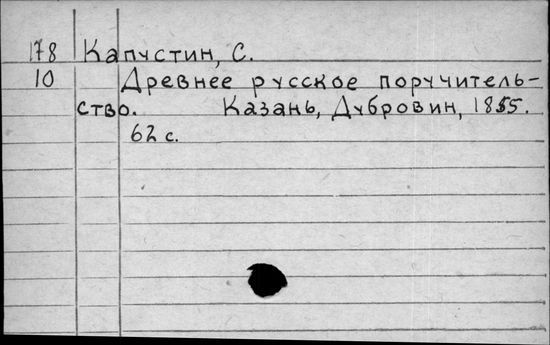 178 Капустин, С.
10 Древнее русское поручитель-
ство. Казань, Дубровин, 1855.
62 с.